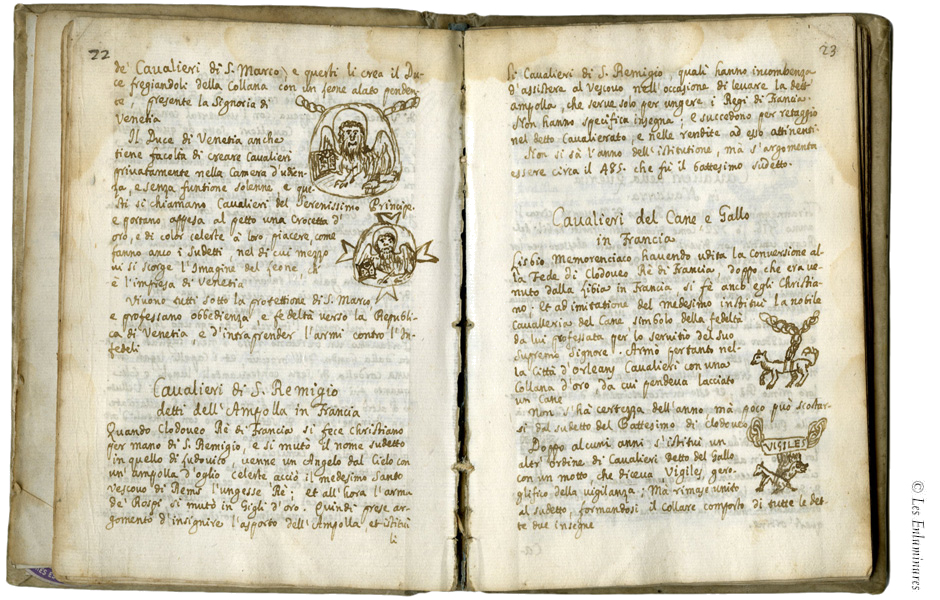 22
de' Cavalieri di S. Marco) e questi li crea il Du-
ce fregiandoli della Collana con un leone alato penden-
te, presente la Signoria di
Venetia
Il Duce di Venetia anche
tiene facoltà di creare Cavalieri
privatamente nella Camera d'udien-
za, e senza funtione solenne, e que-
sti si chiamano Cavalieri del Serenissimo Principe,
e portano appesa al petto una Crocetta d'
oro, e di color celeste à loro piacere, come
fanno anco i sudetti, nel di cui mezzo
vi si scorge l'Imagine del leone, ch'
è l'impresa di Venetia
Vivono detti sotto la protettione di S. Marco
e professano obbedienza, e fedeltà verso la Republi-
ca di Venetia, e d'intraprender l'armi contro l'In-
fedeli
Cavalieri di S. Remigio
detti dell'Ampolla in Francia
Quando Clodoveo Rè di Francia si fece Christiano
per mano di S. Remigio, e si mutò il nome sudetto
in quello di Ludovico, venne un Angelo dal Cielo con
un'ampolla d'oglio Celeste acciò il medesimo Santo
Vescovo di Rems l'ungesse Rè; et all'hora l'arma
de' Rospi si mutò in Gigli d'oro. Quindi prese ar-
gomento d'insignire l'asporto dell'Ampolla et istituì
li
23
li Cavalieri di S. Remigio, quali hanno incombenza
d'assistere al Vescovo nell'occasione di levare la dett'
ampolla, che serve solo per ungere i Regi di Francia.
Non hanno specifica insegna, e succedono per retaggio
nel detto Cavalierato, e nelle rendite ad esso attinenti.
Non si sà l'anno dell'istitutione, mà s'argomenta
essere circa il 485. che fù il battesimo sudetto.
Cavalieri del Cane e Gallo
in Francia
Lisbio Memorenciaco havendo udita la conversione al-
la Fede di Clodoveo Rè di Francia, doppo che era ve-
nuto dalla libia in Francia si fè anch'egli Christia-
no: et ad imitatione del medesimo institui la nobile
Cavalleria del Cane simbolo della fedeltà
da lui professata per lo servitio del suo
supremo Signore. Armò pertanto nel-
la Città d'Orleans Cavalieri con una
Collana d'oro, da cui pendeva lacciato
un Cane
Non s'hà certezza dell'anno, mà poco può scostar-
si dal sudetto del Battesimo di Clodoveo
Doppo alcuni anni s'istituì un
altr'ordine di Cavalieri detto del Gallo
con un motto che diceva, Vigiles, gero-
glifico della vigilanza; Mà rimase unito
al sudetto, formandosi il collare composto di tutte le det-
te due insegne
VIGILES
Ca-
© Les Enluminures